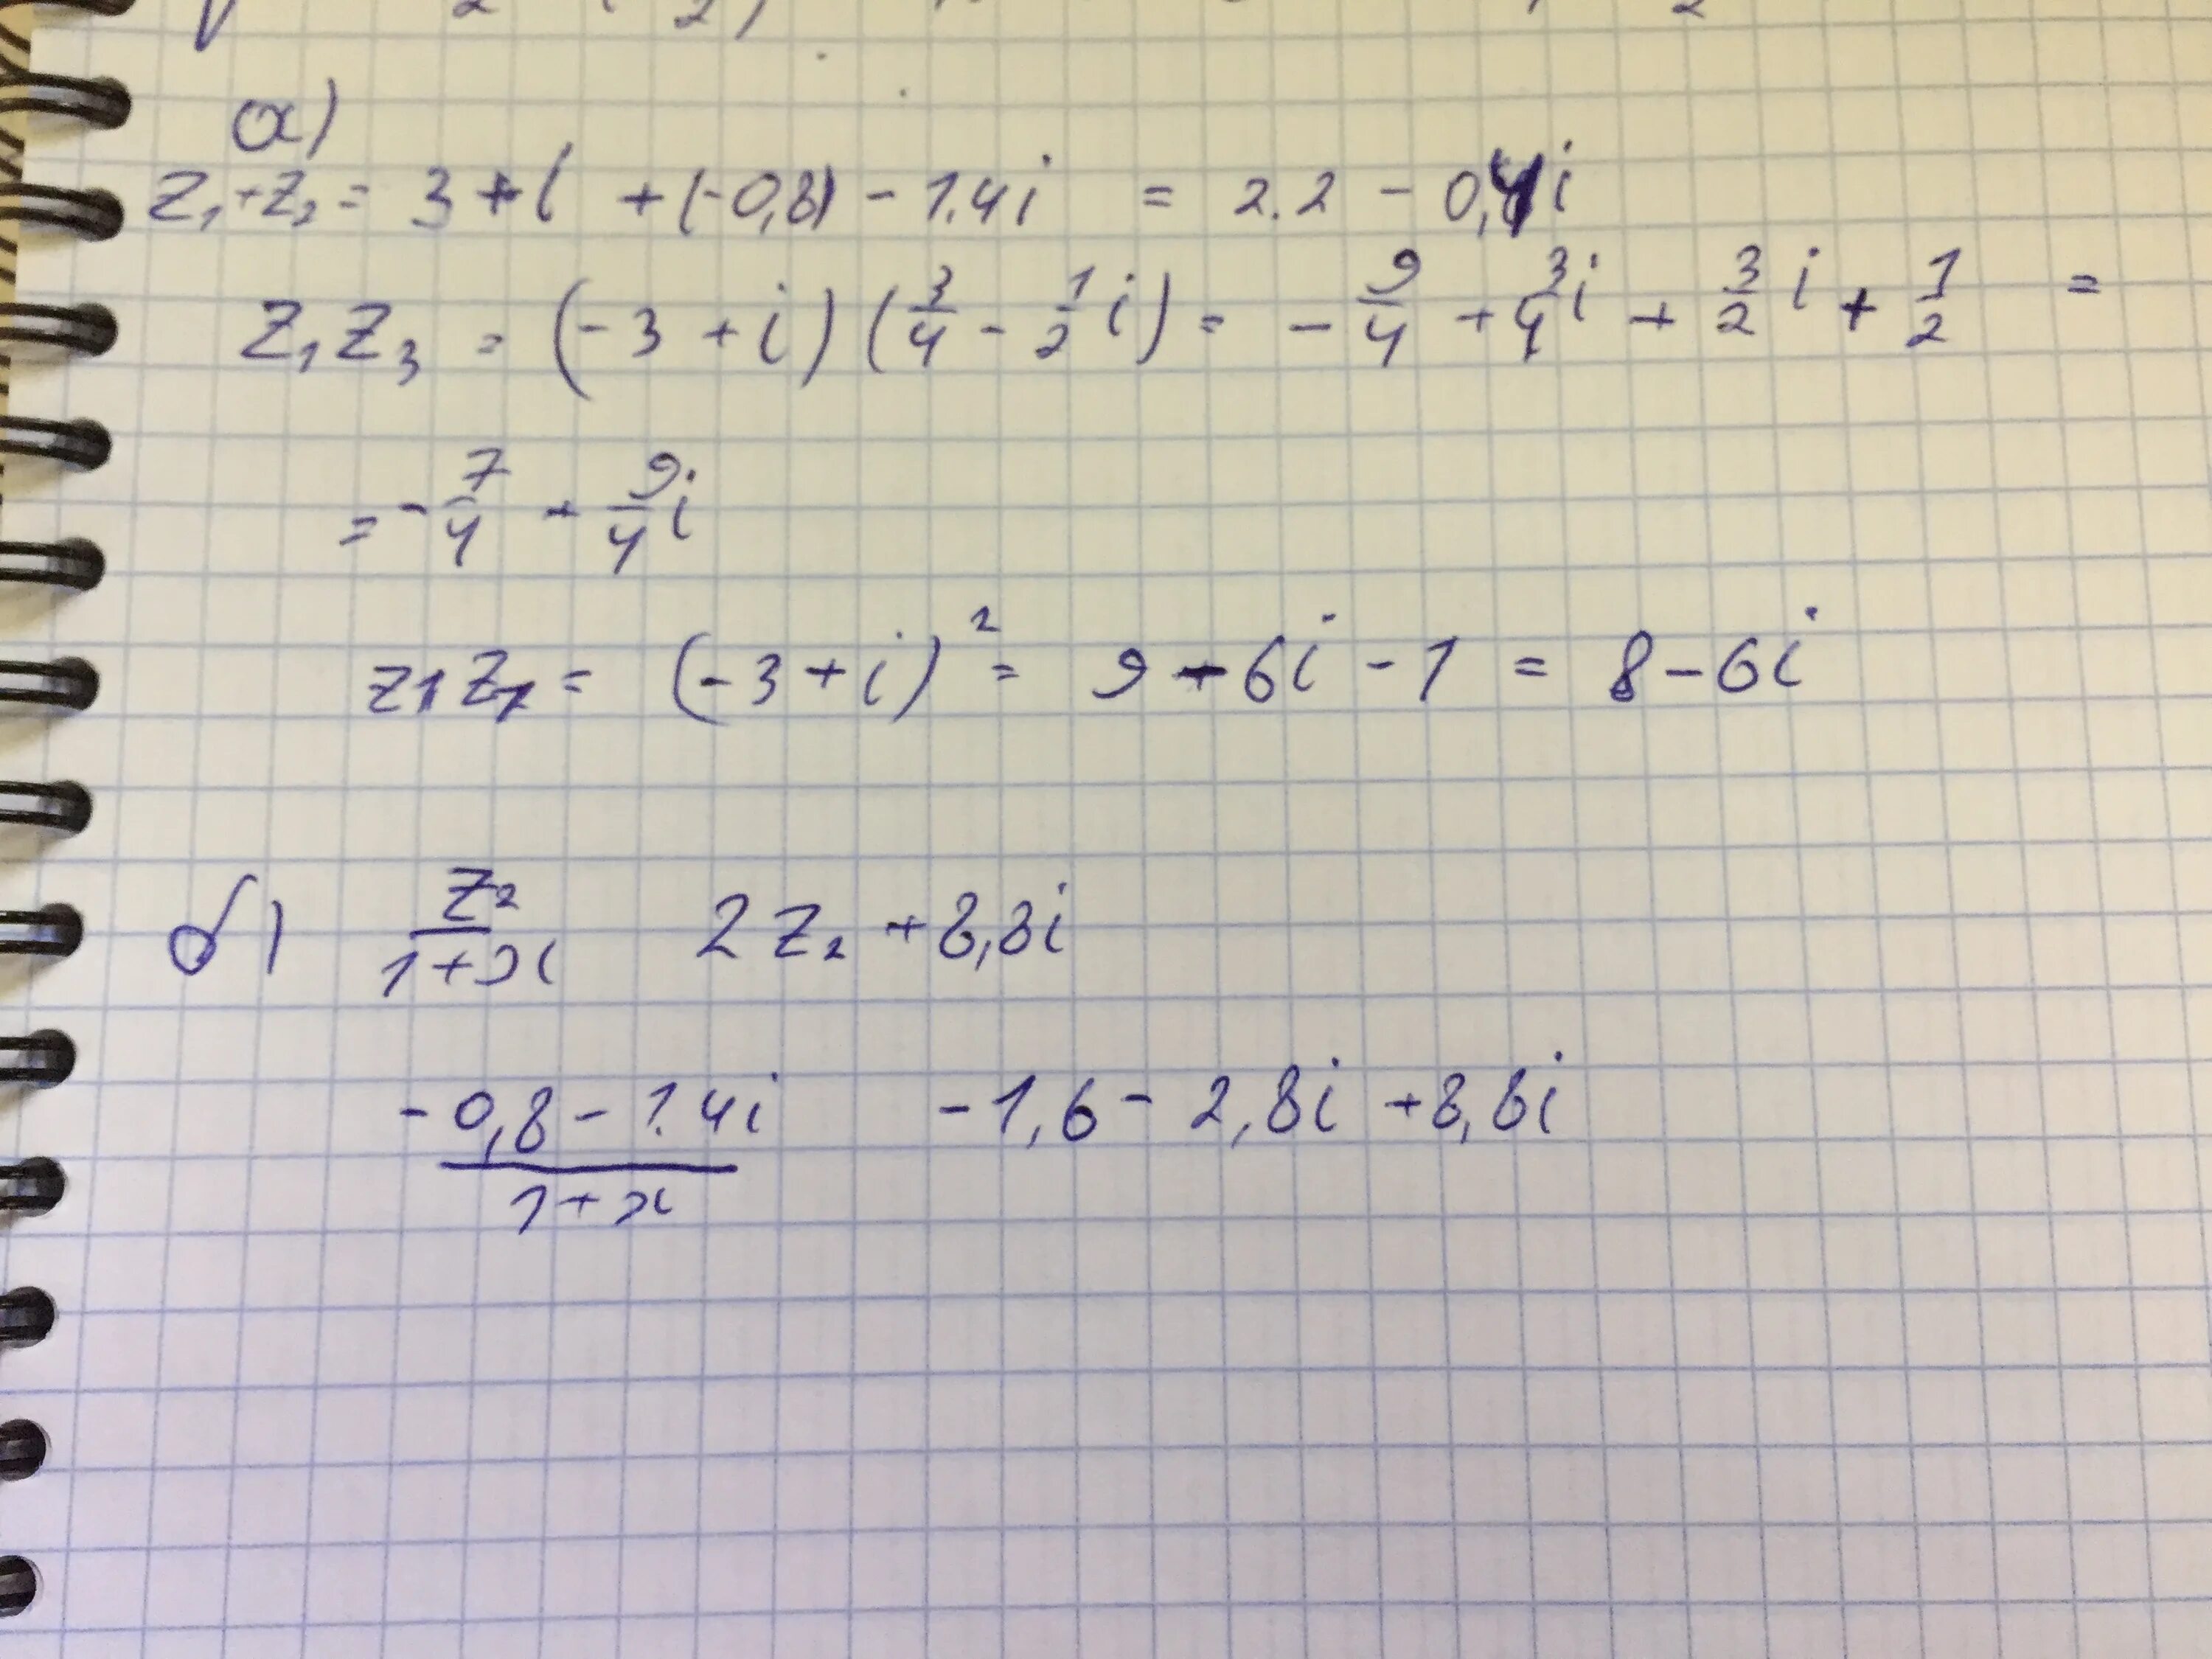 а)
z₁+z₂ = 3 + i + (-0,8) - 1.4i = 2.2 - 0,4i
z₁z₃ = (-3 + i)(3/4 - 1/2 i) = -9/4 + 3/4 i + 3/2 i + 1/2 =
= -7/4 + 9/4 i
z₁z₁ = (-3 + i)² = 9 - 6i - 1 = 8 - 6i
б) z₂/(1+x) 2z₂ + 8,8i
(-0,8 - 1.4i)/(1+x) -1,6 - 2,8i + 8,8i